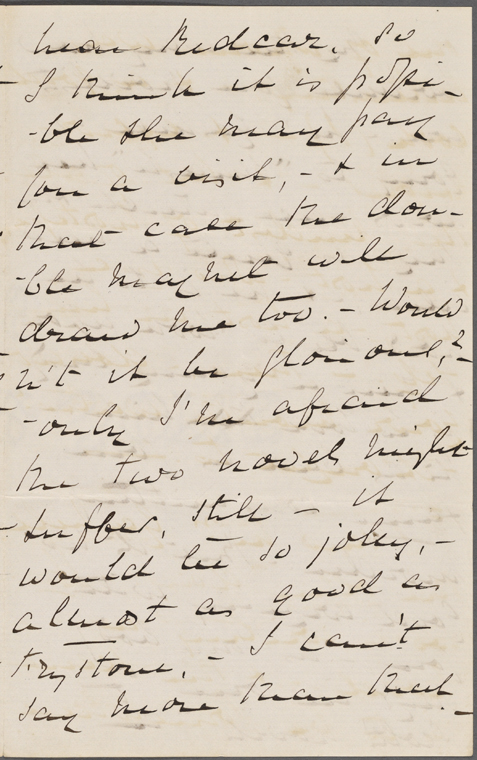 near Redcar. So
I think it is possi-
-ble she may pay
you a visit, - & in
that case the dou-
-ble magnet will
draw me too. - Would
n't it be glorious,?-
-only I'm afraid
the two novels might
suffer, still - it
would be so jolly, -
almost as good as
- I can't
say more than that -